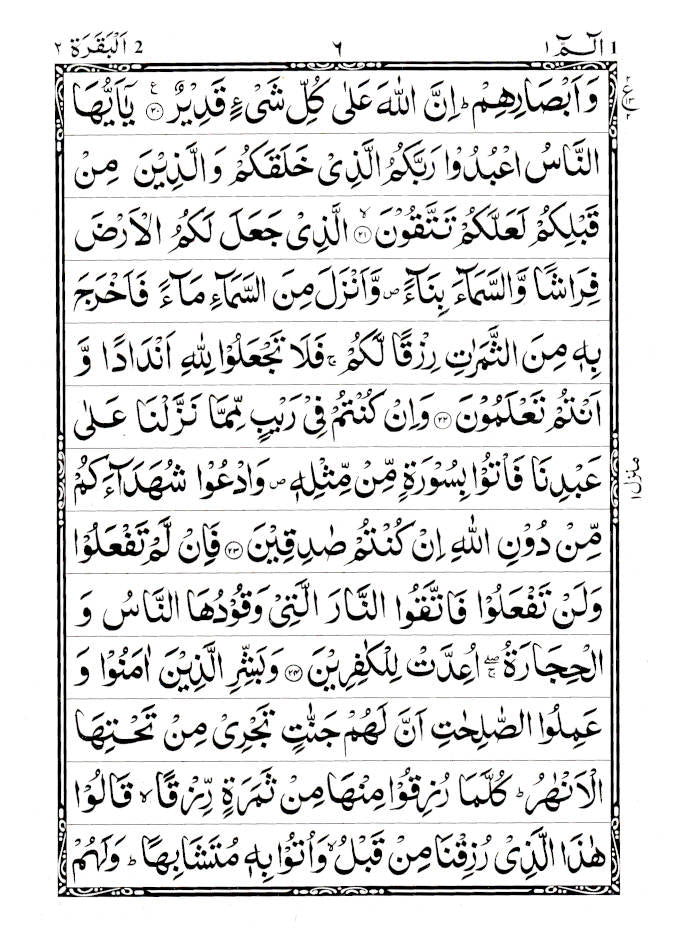 1 الٓمّٓ ١ ٦ 2 اَلْبَقَرَة ٢
وَاَبْصَارِهِمْ ؕ اِنَّ اللّٰهَ عَلٰى كُلِّ شَىْءٍ قَدِيْرٌ ۧ ﴿۲۰﴾ يٰۤاَيُّهَا
النَّاسُ اعْبُدُوْا رَبَّكُمُ الَّذِىْ خَلَقَكُمْ وَالَّذِيْنَ مِنْ
قَبْلِكُمْ لَعَلَّكُمْ تَتَّقُوْنَ ۙ ﴿۲۱﴾ الَّذِىْ جَعَلَ لَكُمُ الْاَرْضَ
فِرَاشًا وَّالسَّمَآءَ بِنَآءً ص وَّاَنْزَلَ مِنَ السَّمَآءِ مَآءً فَاَخْرَجَ
بِهٖ مِنَ الثَّمَرٰتِ رِزْقًا لَّكُمْ ۚ فَلَا تَجْعَلُوْا لِلّٰهِ اَنْدَادًا وَّ
اَنْتُمْ تَعْلَمُوْنَ ﴿۲۲﴾ وَاِنْ كُنْتُمْ فِىْ رَيْبٍ مِّمَّا نَزَّلْنَا عَلٰى
عَبْدِنَا فَاْتُوْا بِسُوْرَةٍ مِّنْ مِّثْلِهٖ ص وَادْعُوْا شُهَدَآءَكُمْ
مِّنْ دُوْنِ اللّٰهِ اِنْ كُنْتُمْ صٰدِقِيْنَ ﴿۲۳﴾ فَاِنْ لَّمْ تَفْعَلُوْا
وَلَنْ تَفْعَلُوْا فَاتَّقُوا النَّارَ الَّتِىْ وَقُوْدُهَا النَّاسُ وَ
الْحِجَارَةُ ۖۚ اُعِدَّتْ لِلْكٰفِرِيْنَ ﴿۲۴﴾ وَبَشِّرِ الَّذِيْنَ اٰمَنُوْا وَ
عَمِلُوا الصّٰلِحٰتِ اَنَّ لَهُمْ جَنّٰتٍ تَجْرِىْ مِنْ تَحْتِهَا
الْاَنْهٰرُ ؕ كُلَّمَا رُزِقُوْا مِنْهَا مِنْ ثَمَرَةٍ رِّزْقًا ۙ قَالُوْا
هٰذَا الَّذِىْ رُزِقْنَا مِنْ قَبْلُ ۙ وَاُتُوْا بِهٖ مُتَشَابِهًا ؕ وَلَهُمْ
منزل ۱